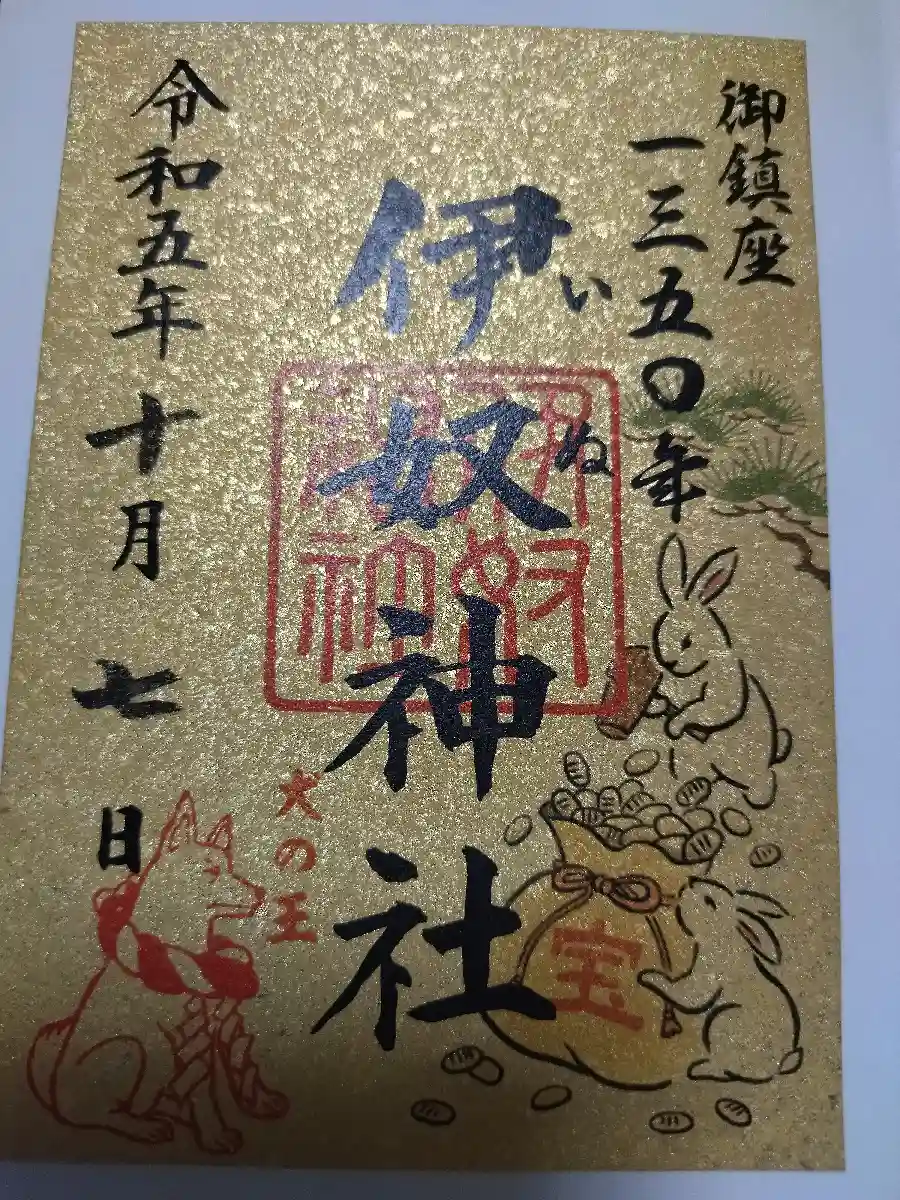 御鎮座
一三五〇年
伊奴神社
いぬ
伊奴
神社
宝
犬の王
令和五年十月七日